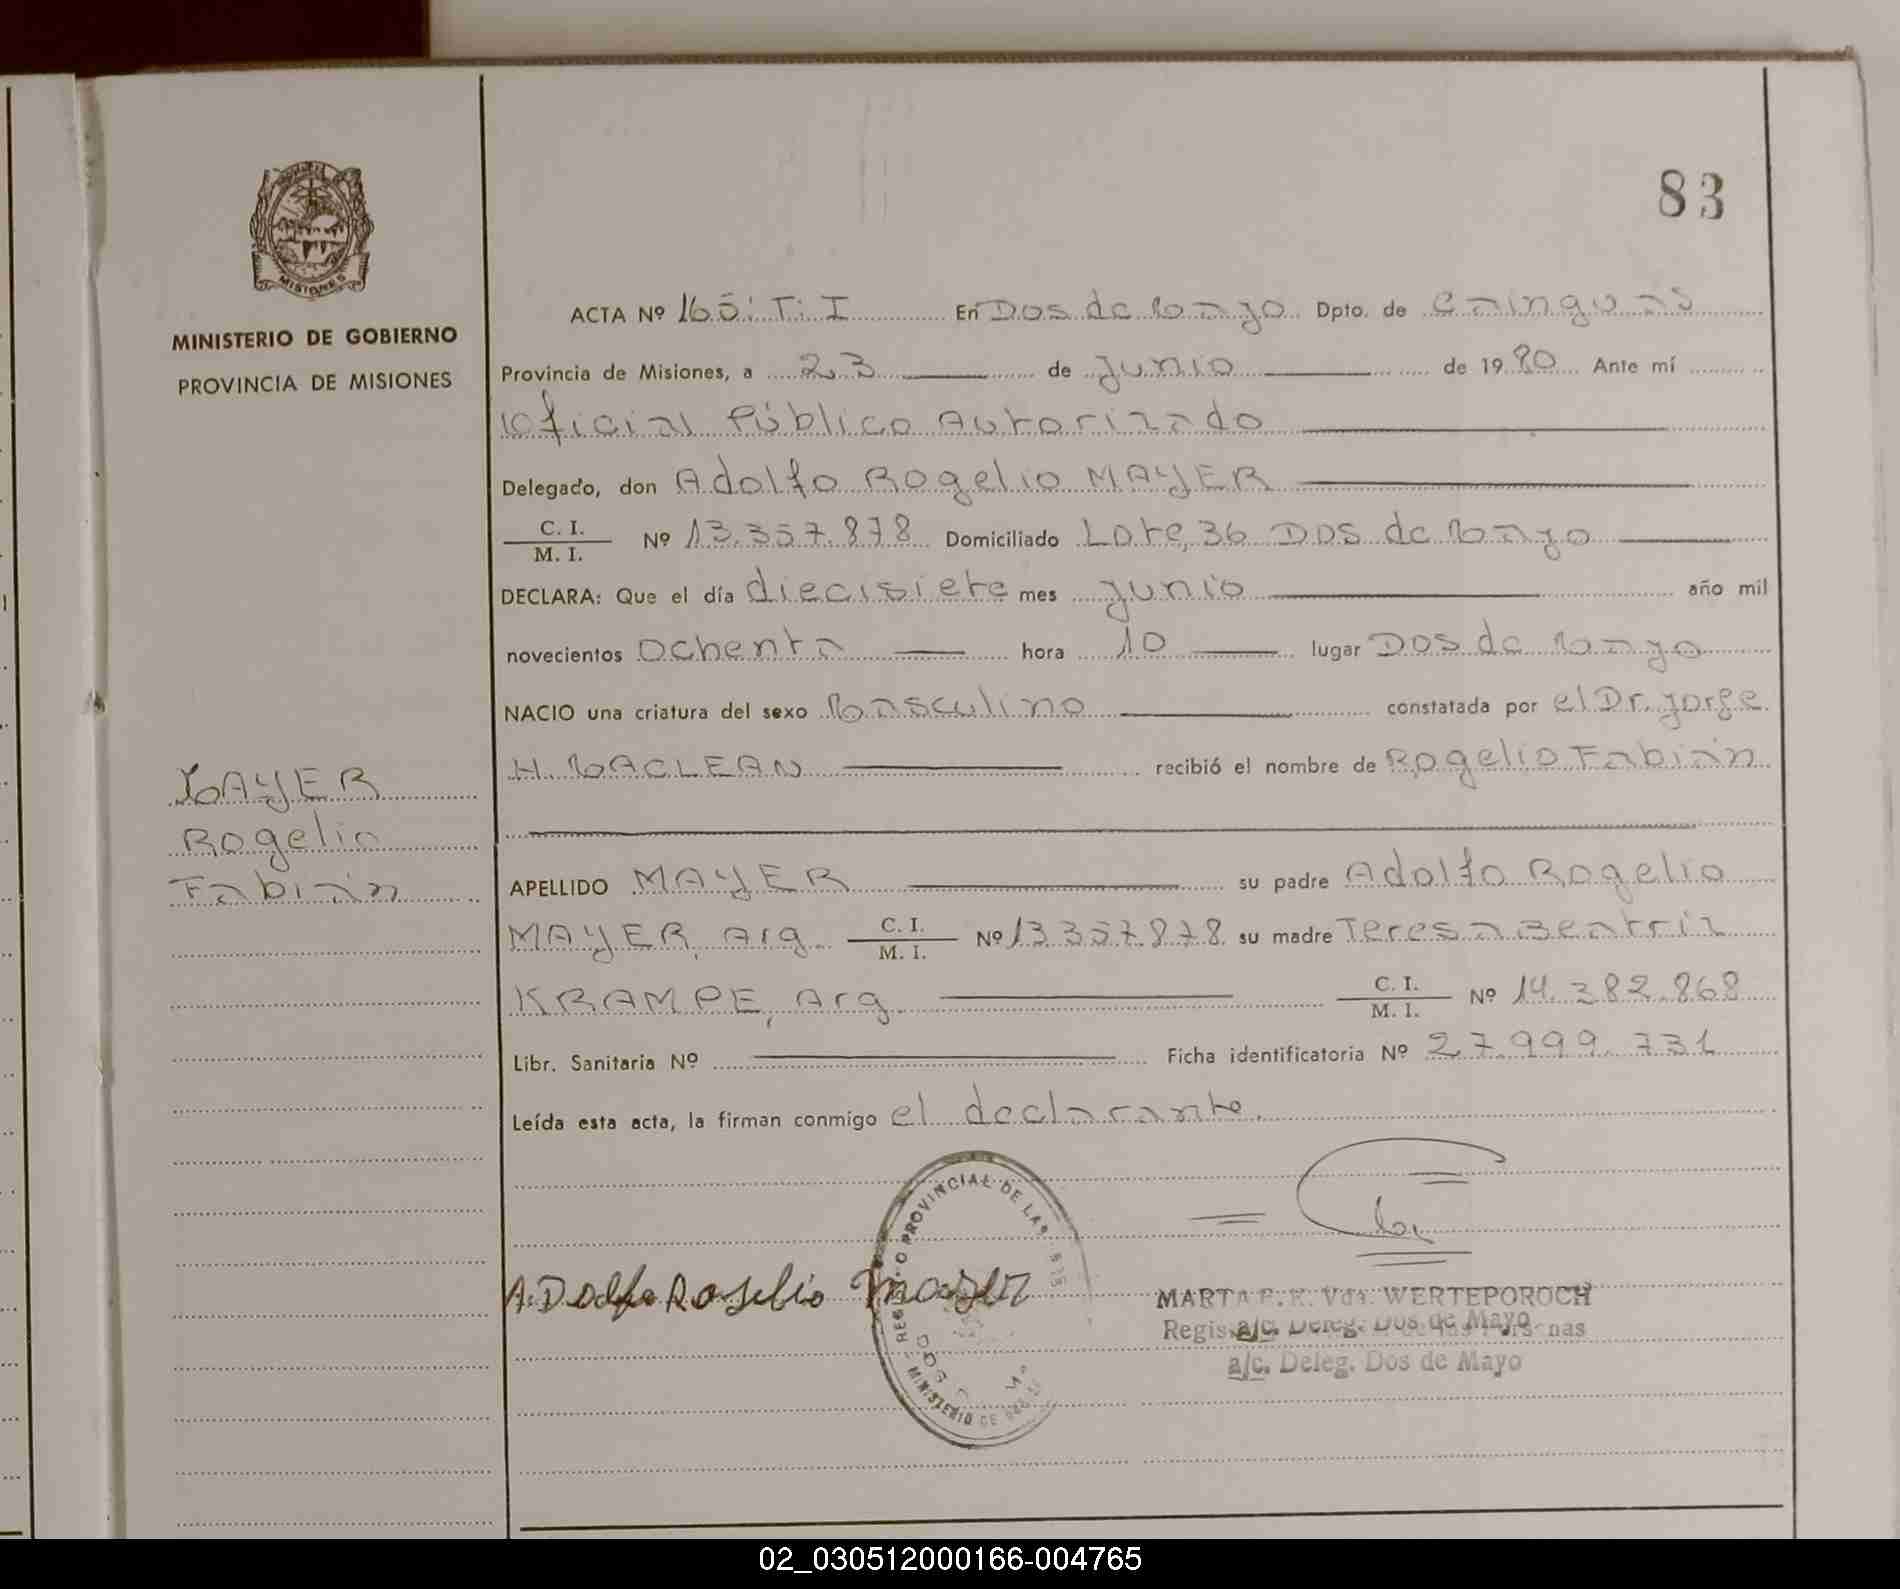 83
MISIONES
MINISTERIO DE GOBIERNO
PROVINCIA DE MISIONES
MAYER
Rogelio
Fabián
ACTA Nº 165: T: I En Dos de Mayo Dpto. de Cainguás
Provincia de Misiones, a 23 de junio de 1980 Ante mí
Oficial Público Autorizado
Delegado, don Adolfo Rogelio MAYER
C. I.
M. I. Nº 13.357.878 Domiciliado Lote, 36 Dos de Mayo
DECLARA: Que el día diecisiete mes junio año mil
novecientos Ochenta hora 10 lugar Dos de Mayo
NACIO una criatura del sexo Masculino constatada por el Dr. Jorge
H. MACLEAN recibió el nombre de Rogelio Fabián
APELLIDO MAYER su padre Adolfo Rogelio
MAYER, Arg. C. I. M. I. Nº 13.357.878 su madre Teresa Beatriz
KRAMPE, Arg. C. I. M. I. Nº 14.382.868
Libr. Sanitaria Nº Ficha identificatoria Nº 27.999.731
Leída esta acta, la firman conmigo el declarante.
REGISTRO PROVINCIAL DE LAS
MINISTERIO DE
ADolfo Rogelio Mayer
MARTA E. K. Vda. WERTEPOROCH
a/c. Deleg. Dos de Mayo
a/c. Deleg. Dos de Mayo
02_030512000166-004765